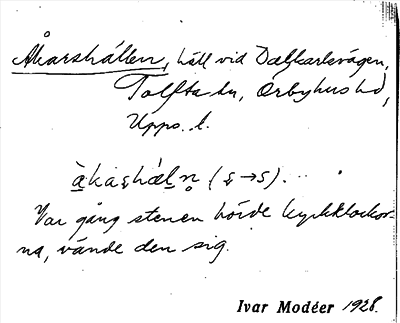 Åkarshällen, häll vid Dalkarlsvägen,
Tolfta sn, Örbyhus hd,
Upps. l.
àkashæln̥ (ş→s).
Var gång stenen hörde kyrkklockor-
na, vände den sig.
Ivar Modéer 1928.